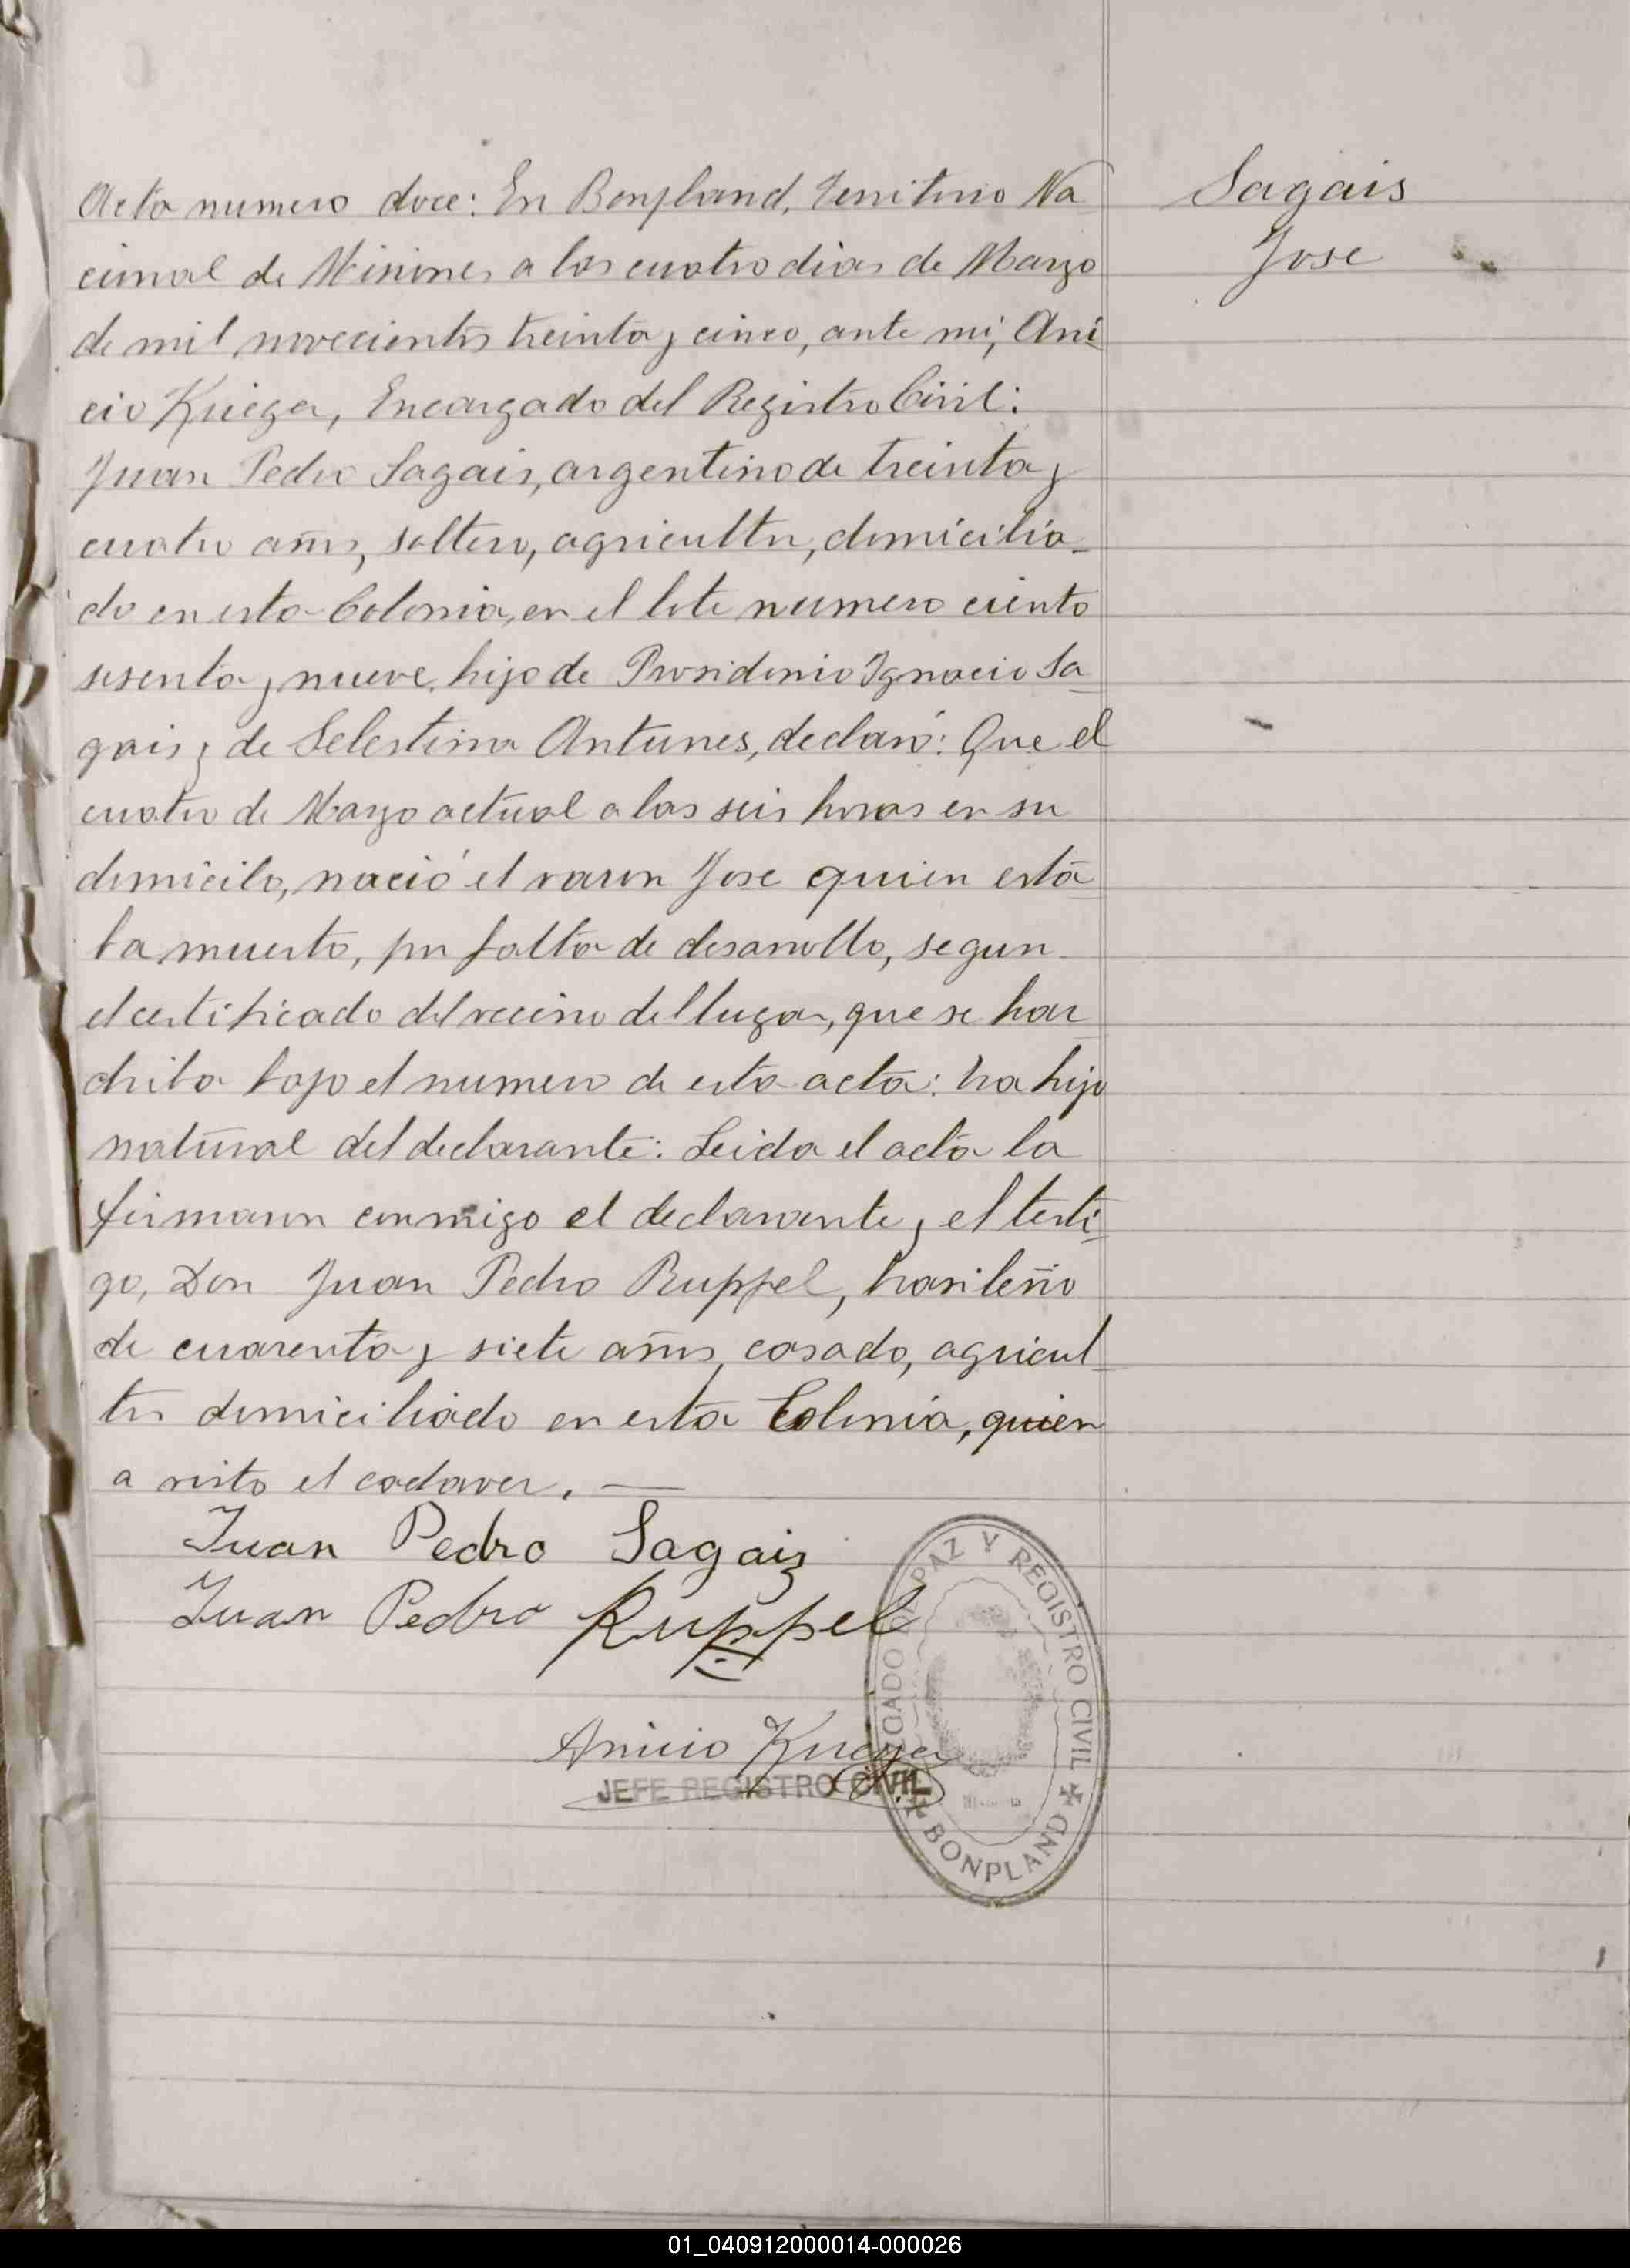 Acta numero doce: En Bonpland, Territorio Na
cional de Misiones a los cuatro dias de Marzo
de mil novecientos treinta y cinco, ante mi, Ani
cio Krieger, Encargado del Registro Civil:
Juan Pedro Sagais, argentino de treinta y
cuatro años, soltero, agricultor, domicilia-
do en esta Colonia, en el lote numero ciento
sesenta y nueve, hijo de Ignacio Sa
gais y de Selestina Antunes, declaró: Que el
cuatro de Marzo actual a las seis horas en su
domicilo, nació el varon Jose quien esta
ba muerto, por falta de desarrollo, segun
el certificado del vecino del lugar, que se har
chiba bajo el numero de esta acta: hijo
natural del declarante: Leida el acta la
firmaron conmigo el declarante y el testi
go, Don Juan Pedro Ruppel, brasileño
de cuarenta y siete años, casado, agricul
tor domiciliado en esta Colonia, quien
a visto el cadaver. —
Juan Pedro Sagais
Juan Pedro Ruppel
Anicio Krieger
JEFE REGISTRO CIVIL
JUZGADO DE PAZ Y REGISTRO CIVIL
BONPLAND
Sagais
Jose
01_040912000014-000026